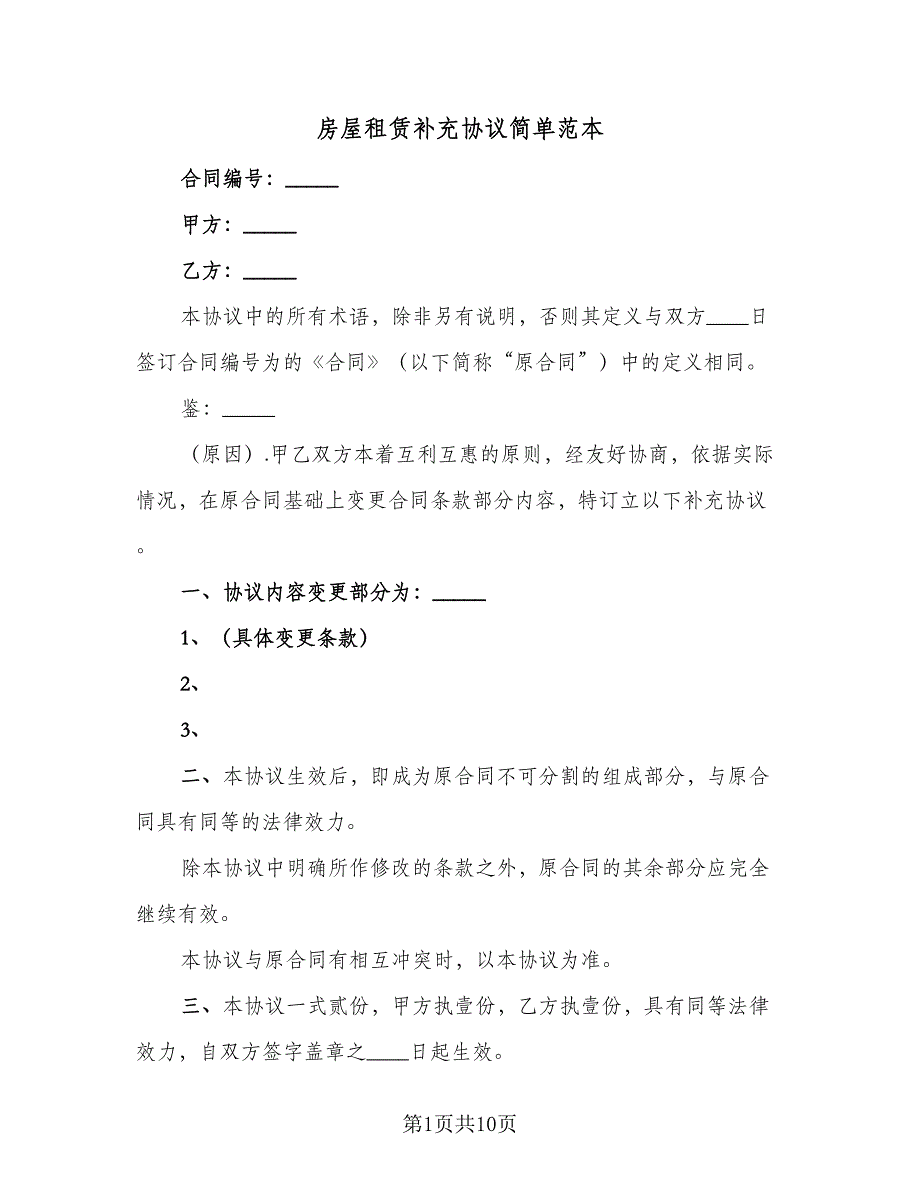 房屋租赁补充协议简单范本
合同编号：_____
甲方：_____
乙方：_____
本协议中的所有术语，除非另有说明，否则其定义与双方____日
签订合同编号为的《合同》（以下简称“原合同”）中的定义相同。
鉴：_____
（原因）.甲乙双方本着互利互惠的原则，经友好协商，依据实际
情况，在原合同基础上变更合同条款部分内容，特订立以下补充协议
。
一、协议内容变更部分为：_____
1、（具体变更条款）
2、
3、
二、本协议生效后，即成为原合同不可分割的组成部分，与原合
同具有同等的法律效力。
除本协议中明确所作修改的条款之外，原合同的其余部分应完全
继续有效。
本协议与原合同有相互冲突时，以本协议为准。
三、本协议一式贰份，甲方执壹份，乙方执壹份，具有同等法律
效力，自双方签字盖章之____日起生效。
第1页共10页